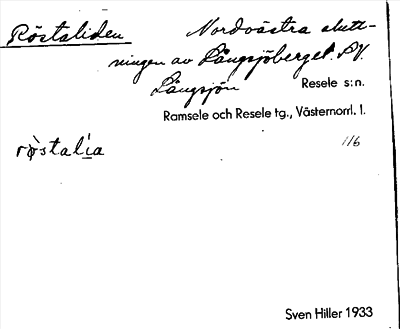 Röstaliden
Nordvästra slutt-
ningen av Långsjöberget. N.V.
Långsjön
Resele s:n.
Ramsele och Resele tg., Västernorrl. l.
116
Sven Hiller 1933